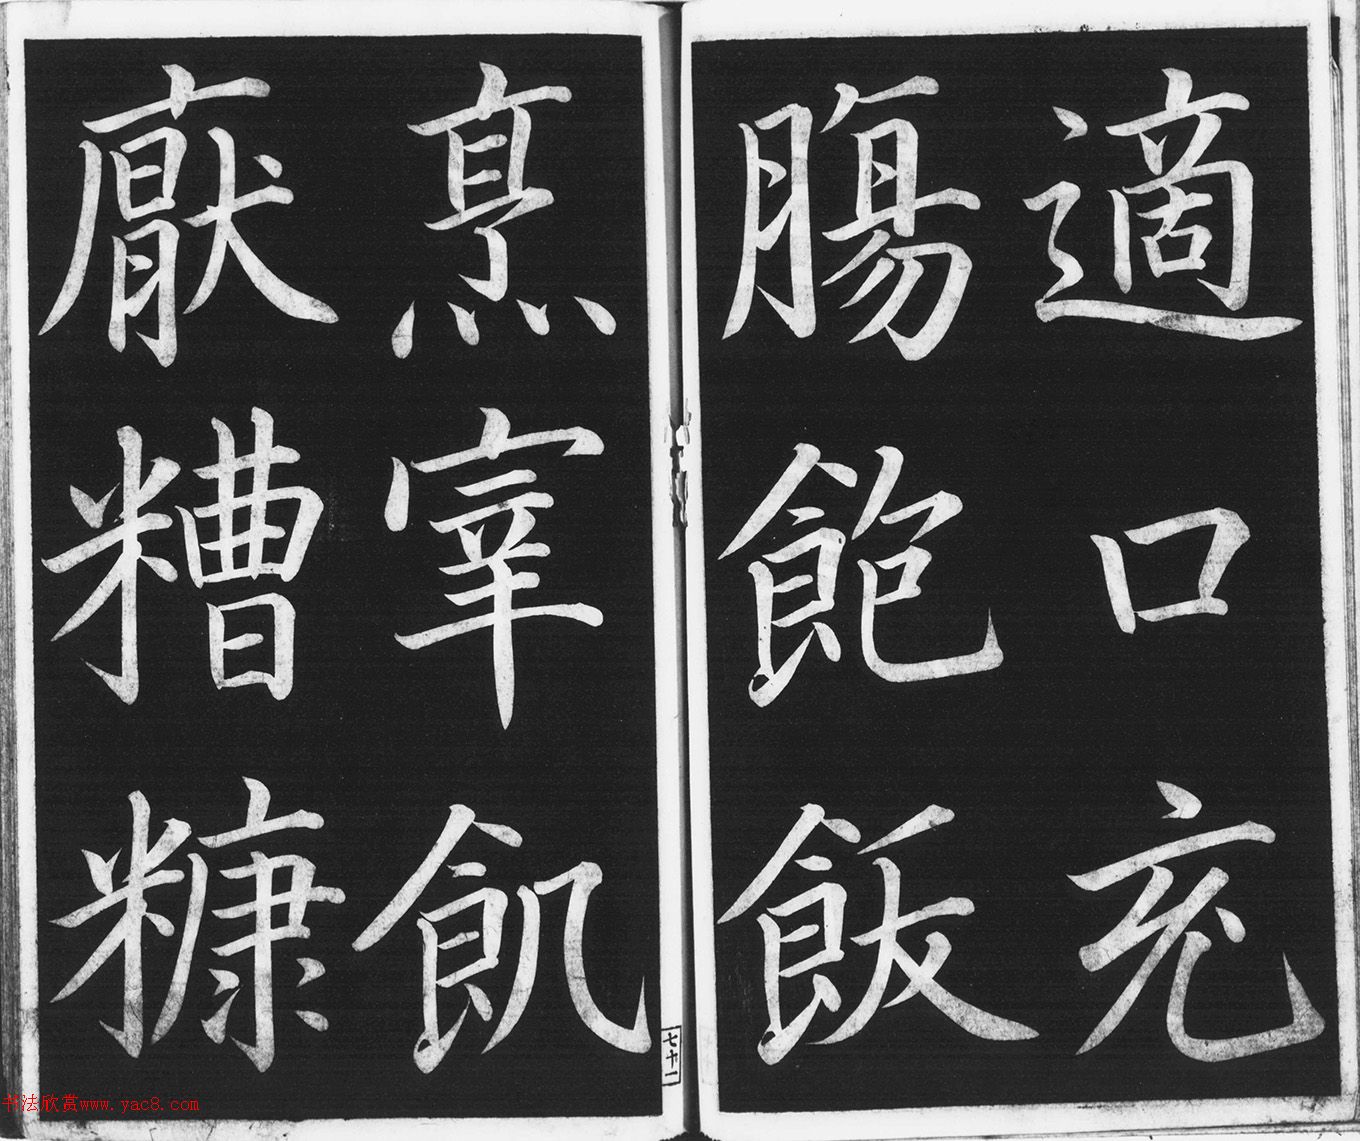 適口充
腸飽飯
烹宰飢
厭糟糠
七十一
书法欣赏www.yac8.com